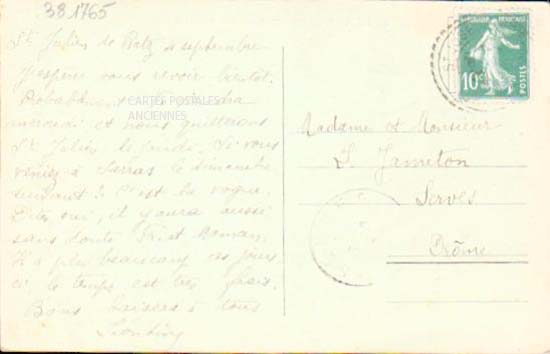 38.1765
St Julien de Ratz 4 septembre
J'espère vous revoir bientôt.
CARTES POSTALES
ANCIENNES
mercredi et nous quitterons
St Julien le lundi. Si vous
veniez à Sarras le dimanche
suivant? C'est la vogue.
Dites oui, il y aura aussi
sans doute Fr. et Maman.
Il a plu beaucoup ces jours
ci le temps est très frais.
Bons baisers à tous
REPUBLIQUE FRANÇAISE
10c
POSTES
Madame et Monsieur
J. Jameton
Serves
Drôme